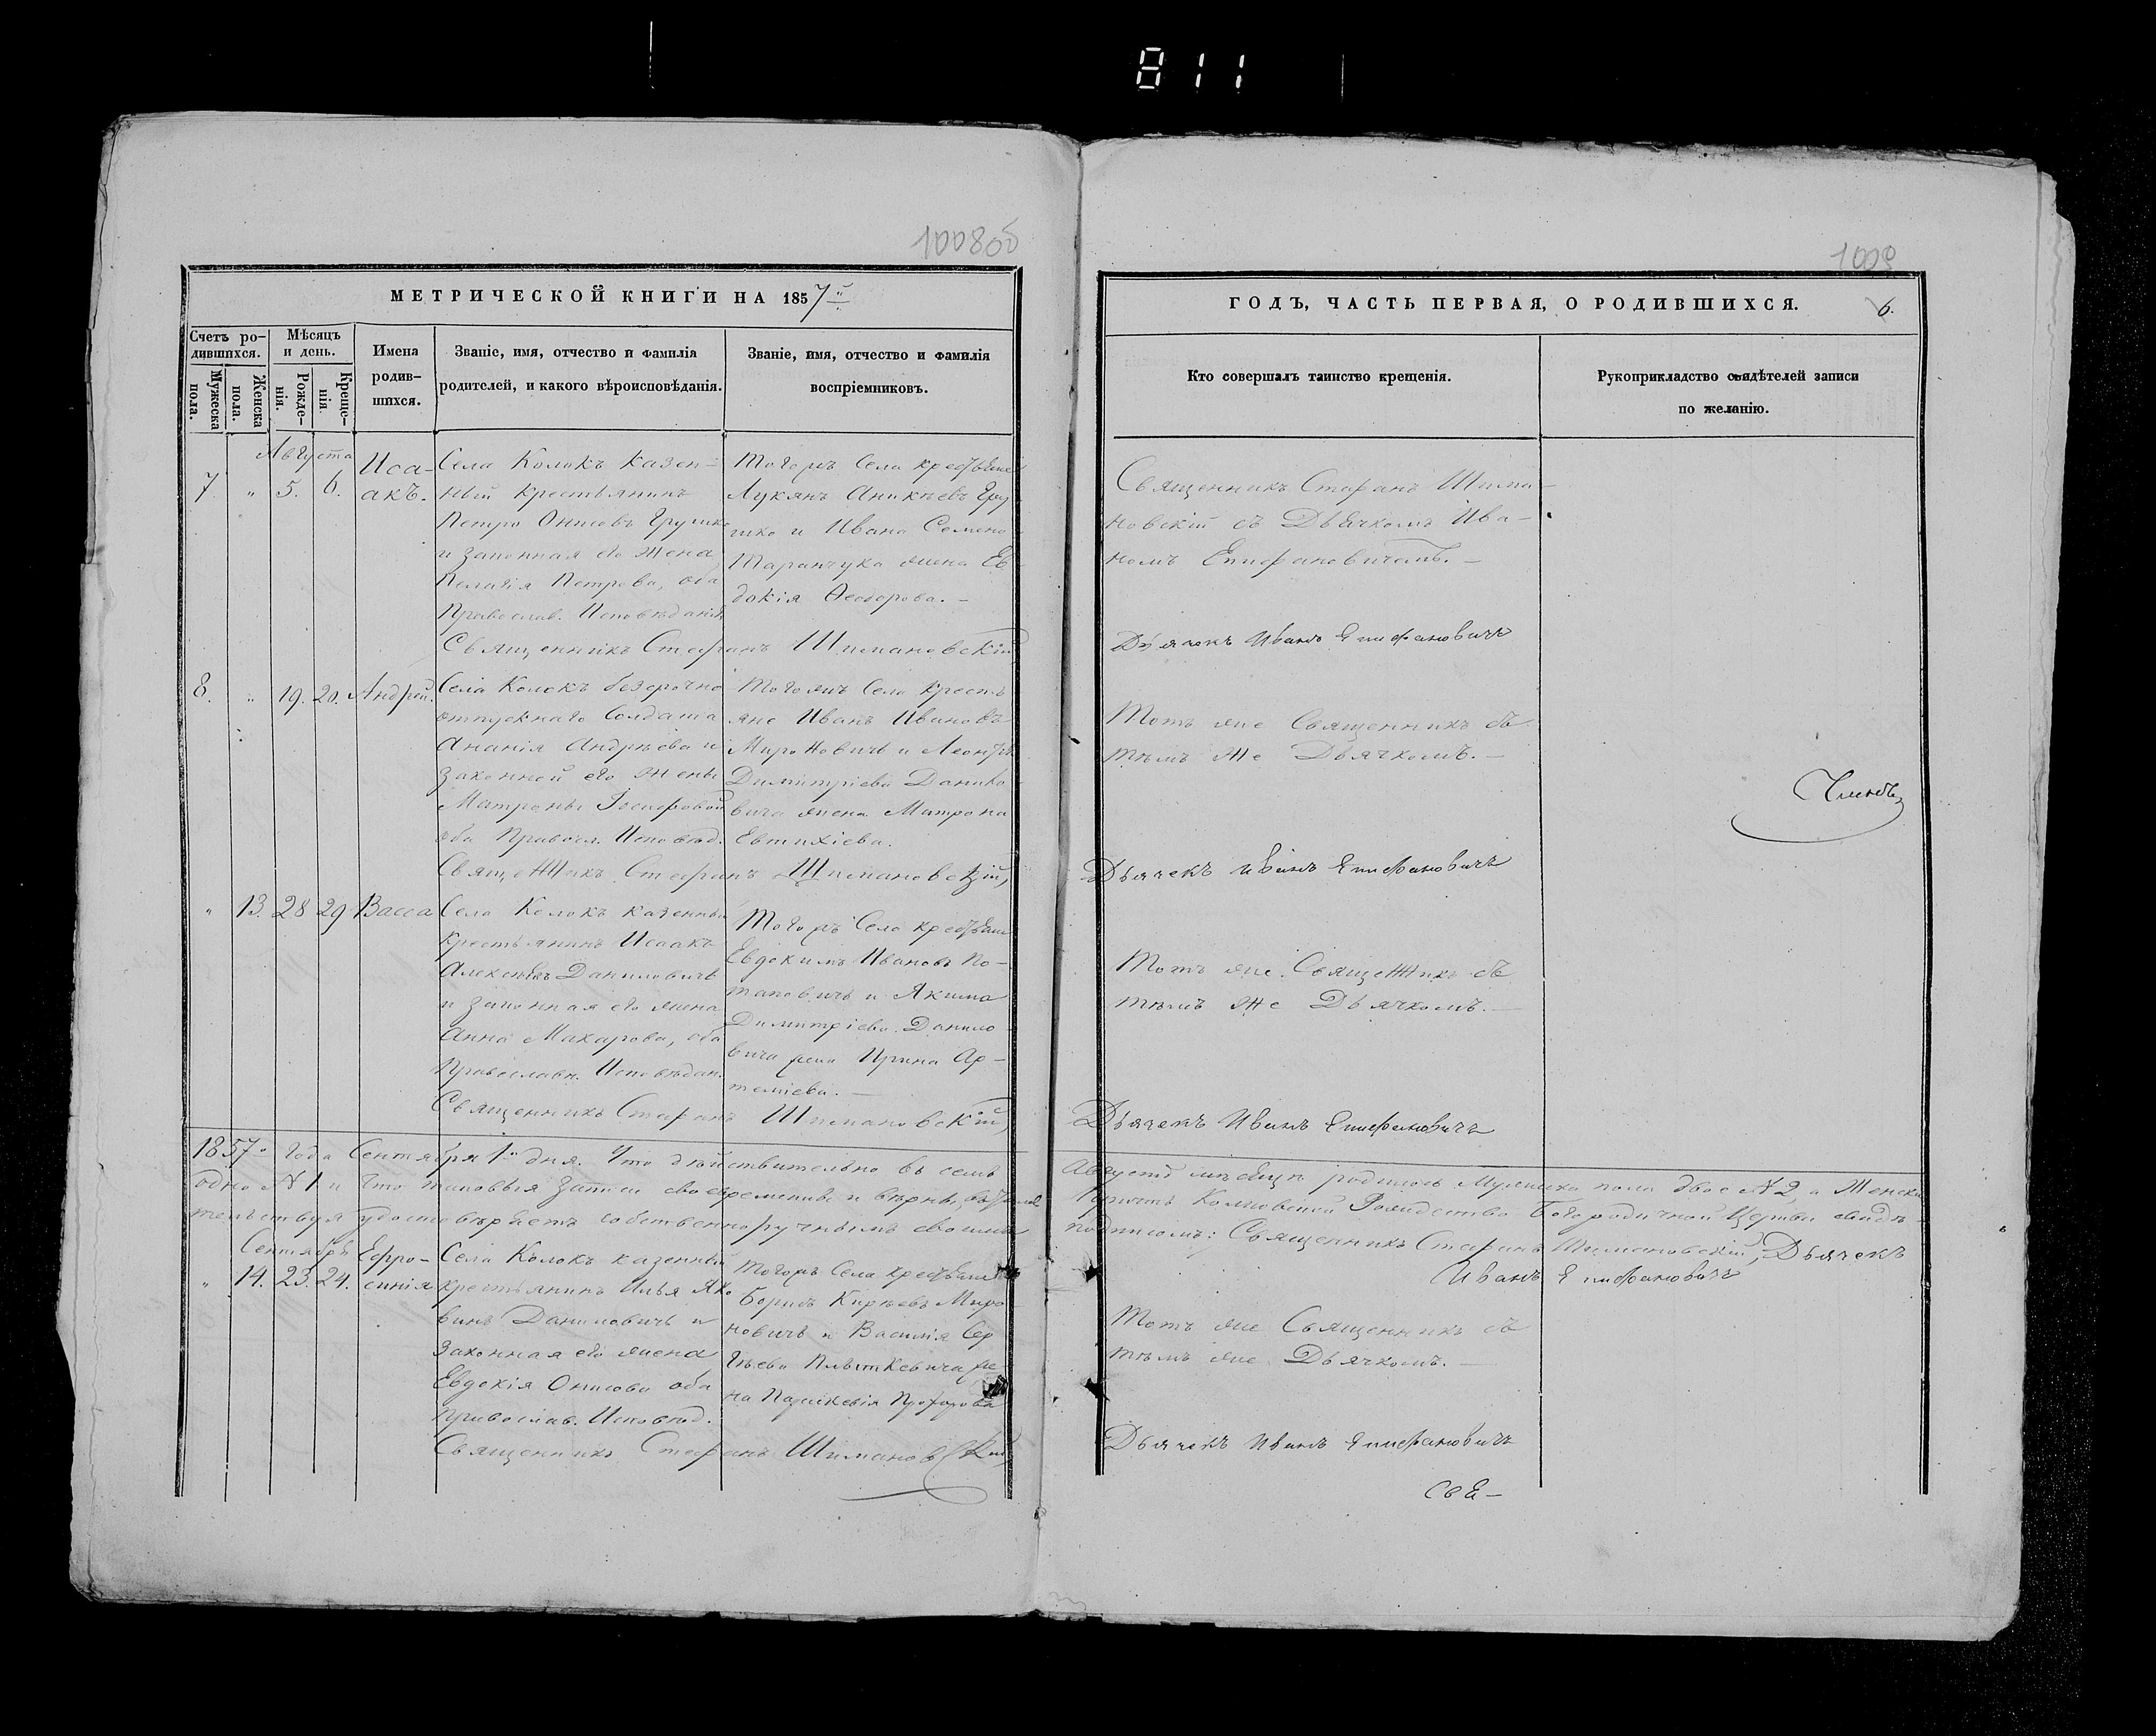 811
1008об
1009
МЕТРИЧЕСКОЙ КНИГИ НА 1857й
ГОДЪ, ЧАСТЬ ПЕРВАЯ, О РОДИВШИХСЯ.
6.
Счетъ ро-
дившихся.
Мужеска
пола.
Женска
пола.
Мѣсяцъ
и день.
Рожде-
нія.
Креще-
нія.
Имена
родив-
шихся.
Званіе, имя, отчество и фамилія
родителей, и какого вѣроисповѣданія.
Званіе, имя, отчество и фамилія
воспріемниковъ.
Кто совершалъ таинство крещенія.
Рукоприкладство свидѣтелей записи
по желанію.
Августа
7. " 5. 6.
Иса-
акъ.
Села Колокъ казен-
ный крестьянинъ
Петръ Онисовъ Грушко
и законная его жена
Пелагія Петрова, оба
Православ. Исповѣданія
Тогожъ Села крестьяне
Лукянъ Аникѣевъ Гру
шко и Ивана Семено
Таранчука жена Ев
докія Ѳеодорова. -
Священникъ Стефанъ Шимановскій
Священникъ Стефанъ Шима-
новскій съ Дьячкомъ Ива-
номъ Епифановичемъ. -
Дьячекъ Иванъ Епифановичъ
8. " 19. 20. Андрей.
Села Колокъ безсрочно
отпускнаго Солдата
Ананія Андрѣева и
законной его жены
Матроны Іосифовой
оба Правосл. Исповѣд.
Тогожъ Села кресть
яне Иванъ Ивановъ
Мироновичъ и Леонтія
Димитріева Данило
вича жена Матрона
Евтихіева.
Священникъ Стефанъ Шимановскій,
Тотъ же Священникъ съ
тѣмъ же Дьячкомъ. -
Дьячекъ Иванъ Епифановичъ
" 13. 28 29 Васса
Села Колокъ казенный
крестьянинъ Исаакъ
Алексѣевъ Даниловичъ
и законная его жена
Анна Макарова, оба
Православн. Исповѣдан.
Тогожъ Села крестьяне
Евдокимъ Ивановъ По-
таповичъ и Якима
Димитріева Данило
вича жена Ирина Ар-
теміева. -
Священникъ Стефанъ Шимановскій,
Тотъ же Священникъ съ
тѣмъ же Дьячкомъ. -
Дьячекъ Иванъ Епифановичъ
1857го Года Сентября 1го дня. Что дѣйствительно въ семъ Августѣ мѣсяцѣ родилось Мужеска пола двое №2, а Женска
одно №1 и Что таковыя Записи своевременны и вѣрны, Причтъ Колковской Рождество Богородичной Церкви свидѣ-
тельствуя удостовѣряетъ собственноручнымъ своимъ подписомъ: Священникъ Стефанъ Шимановскій, Дьячекъ
Иванъ Епифановичъ
Сентября
" 14. 23. 24.
Ефро-
синія
Села Колокъ казенный
крестьянинъ Илья Яко
вовъ Даниловичъ и
законная его жена
Евдокія Онисова оба
Православ. Исповѣд.
Тогожъ Села крестьяне
Борисъ Кирѣевъ Миро
новичъ и Василія Сер
гѣева жe-
на Параскевія Прохорова
Священникъ Стефанъ Шимановскій
Тотъ же Священникъ съ
тѣмъ же Дьячкомъ. -
Дьячекъ Иванъ Епифановичъ